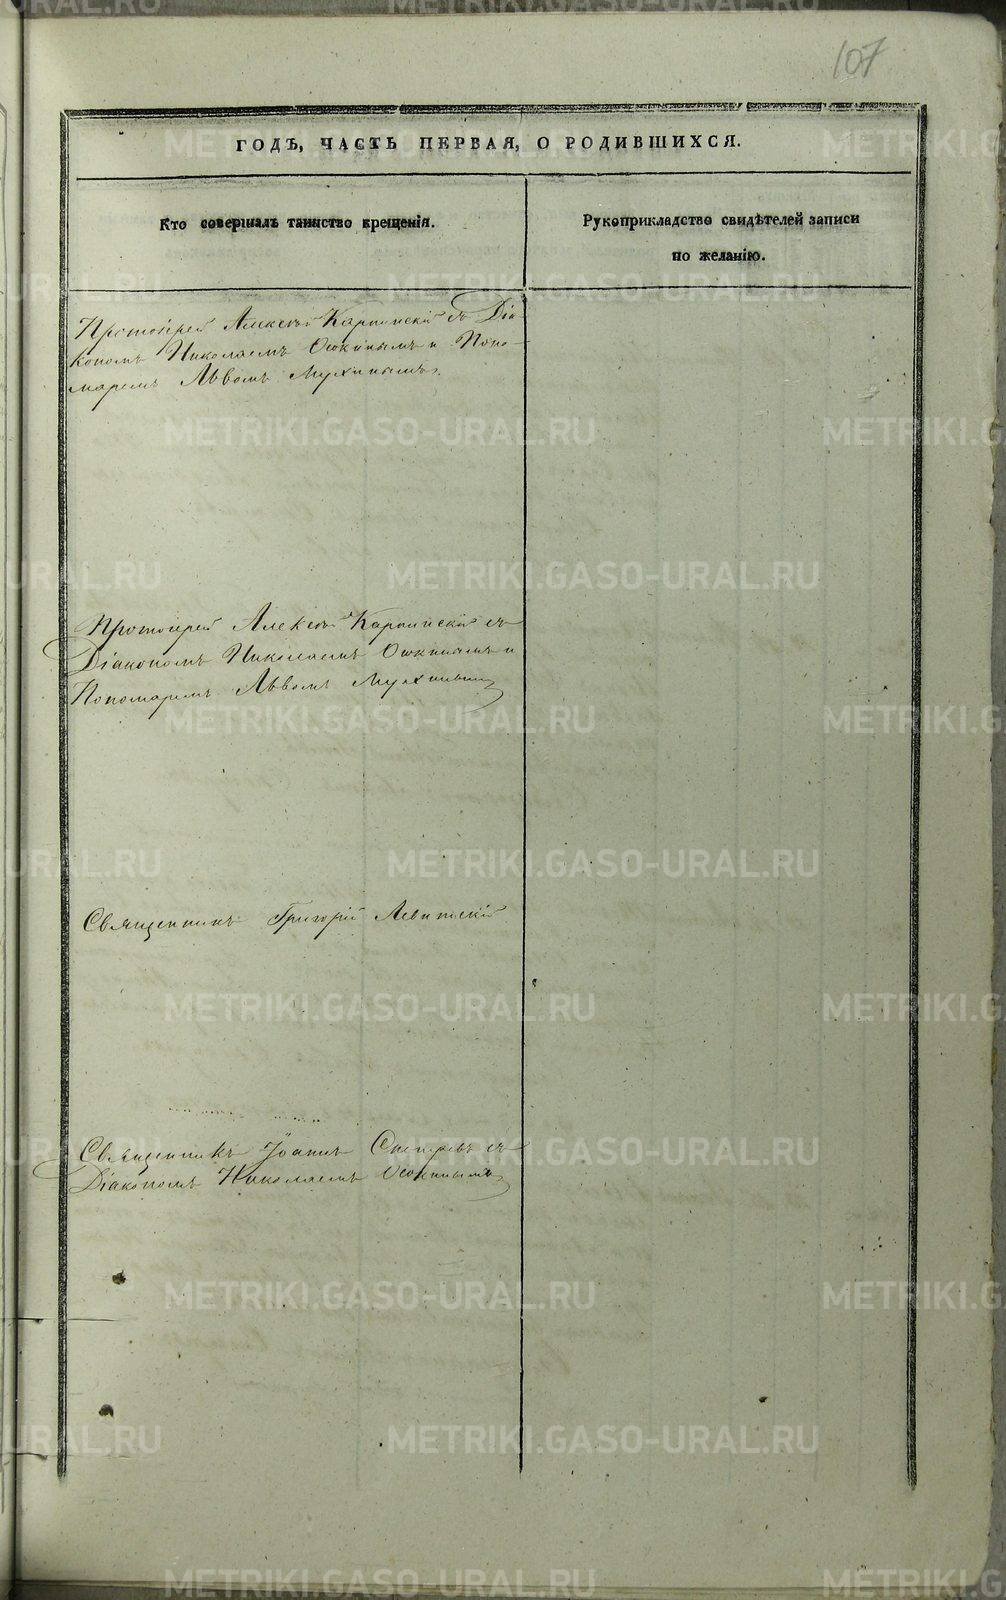 107
ГОДЪ, ЧАСТЬ ПЕРВАЯ, О РОДИВШИХСЯ.
Кто совершалъ таинство крещенія.
Рукоприкладство свидѣтелей записи
по желанію.
Протоіерей Алексѣй Карпинскій съ Діа-
кономъ Николаемъ Осокинымъ и Поно-
маремъ Львомъ Мухинымъ.
Протоіерей Алексѣй Карпинскій съ
Діакономъ Николаемъ Осокинымъ и
Пономаремъ Львомъ Мухинымъ
Священникъ Григорій Левитскій
Священникъ Іоаннъ съ
Діакономъ Николаемъ Осокинымъ
METRIKI.GASO-URAL.RU